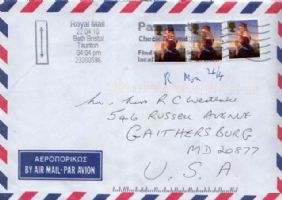 Royal Mail
22.04.10
Bath Bristol
Taunton
04:04 pm
23200596
Find
local
R Mon 26/4
R C Westlake
546 RUSSELL AVENUE
GAITHERSBURG
MD 20877
U.S.A
ΑΕΡΟΠΟΡΙΚΩΣ
BY AIR MAIL · PAR AVION